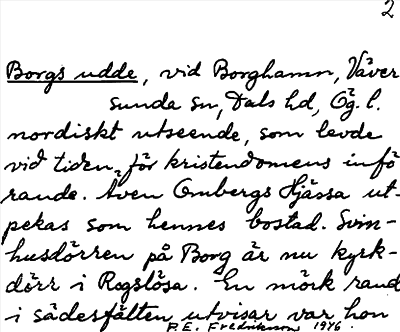 2
Borgs udde, vid Borghamn, Väver
sunda sn, Dals hd, Ög. l.
nordiskt utseende, som levde
vid tiden för kristendomens infö
rande. Även Ombergs Hjässa ut-
pekas som hennes bostad. Svin-
husdörren på Borg är nu kyrk-
dörr i Rogslösa. En mörk rand
i sädesfälten utvisar var hon
P.E. Fredriksson 1946.